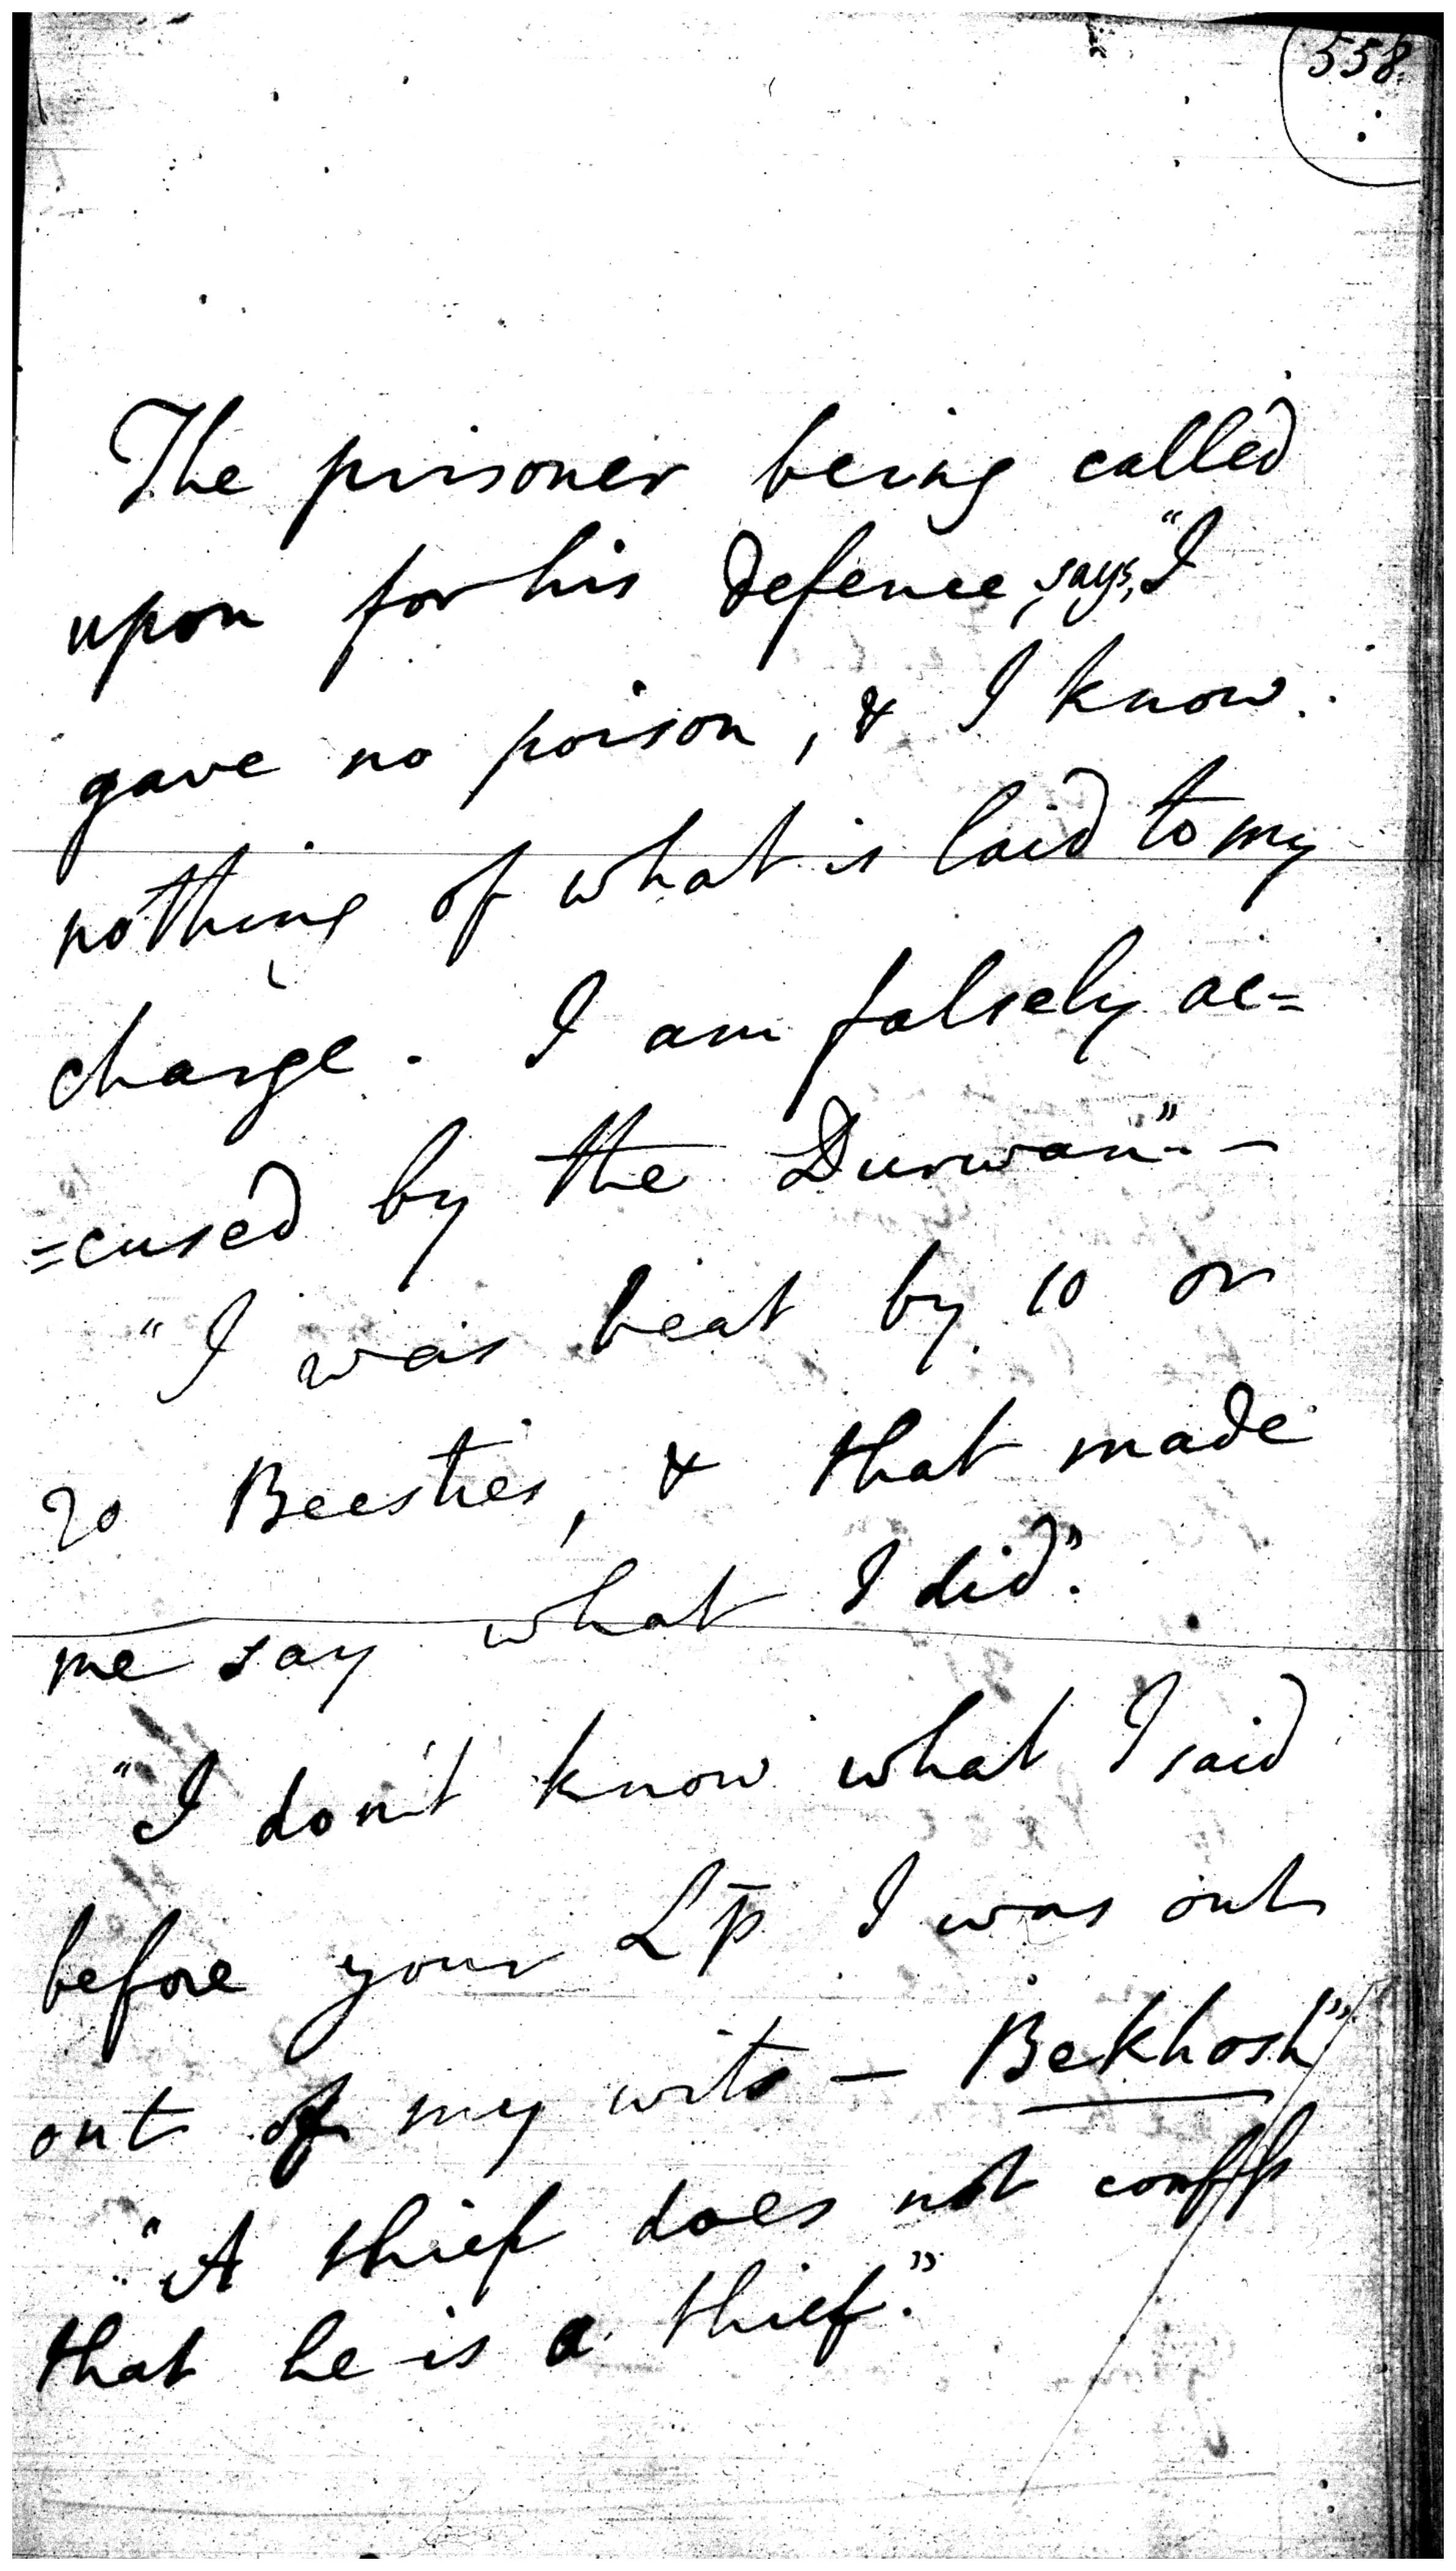 558.
The prisoner being called
upon for his defence, says, "I
gave no poison, & I know
nothing of what is laid to my
charge. I am falsely ac=
=cused by the Durwan." -
"I was beat by 10 or
20 Beesties, & that made
me say what I did."
"I don't know what I said
before your Lp I was out
out of my wits - Bekhosh"
"A thief does not confess
that he is a thief."